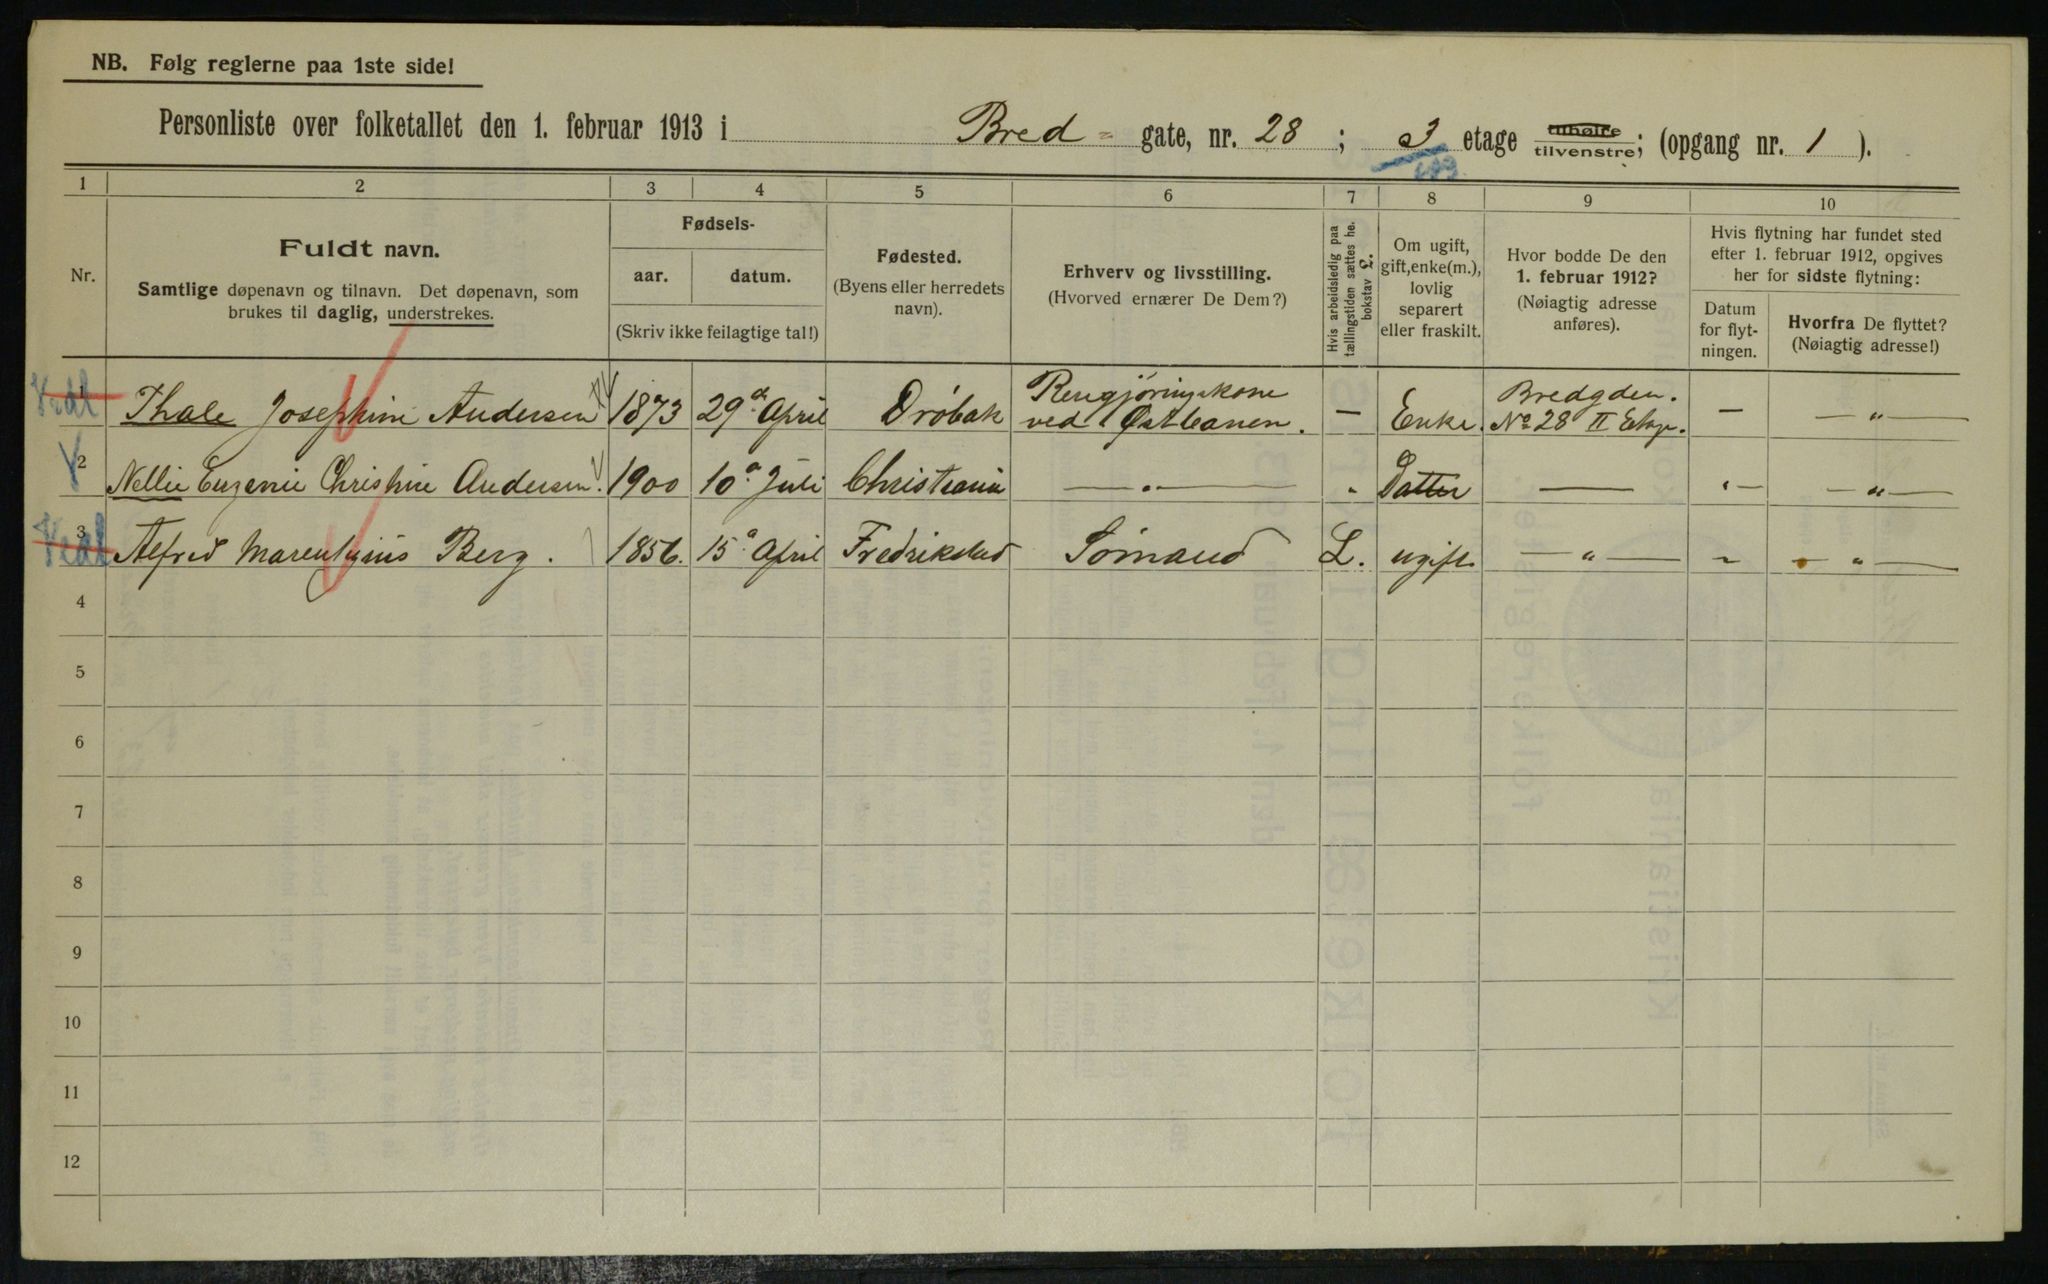 NB. Følg reglerne paa 1ste side!
Personliste over folketallet den 1. februar 1913 i Bred- gate, nr. 28 ; 3 etage tilhøire tilvenstre; (opgang nr. 1 ).
1 2 3 4 5 6 7 8 9 10
Nr.
Fuldt navn.
Samtlige døpenavn og tilnavn. Det døpenavn, som
brukes til daglig, understrekes.
Fødsels-
aar. datum.
(Skriv ikke feilagtige tal!)
Fødested.
(Byens eller herredets
navn).
Erhverv og livsstilling.
(Hvorved ernærer De Dem?)
Hvis arbeidsledig paa
tællingstiden sættes he.
bokstav L.
Om ugift,
gift, enke(m.),
lovlig
separert
eller fraskilt.
Hvor bodde De den
1. februar 1912?
(Nøiagtig adresse
anføres).
Hvis flytning har fundet sted
efter 1. februar 1912, opgives
her for sidste flytning:
Datum
for flyt-
ningen.
Hvorfra De flyttet?
(Nøiagtig adresse!)
1 Thale Josephine Andersen 1873 29de April Drøbak Rengjøringskone ved Østbanen. — Enke. Bredgden. No 28 II Etage. — — „ —
2 Nellie Eugenie Christine Andersen. 1900 10 Juli Christiania — „ — Datter — „ — — „ —
3 Alfred Marentzius Berg. 1856. 15 April Fredrikstad Sømand L. ugift — „ — „ — „ —
4
5
6
7
8
9
10
11
12